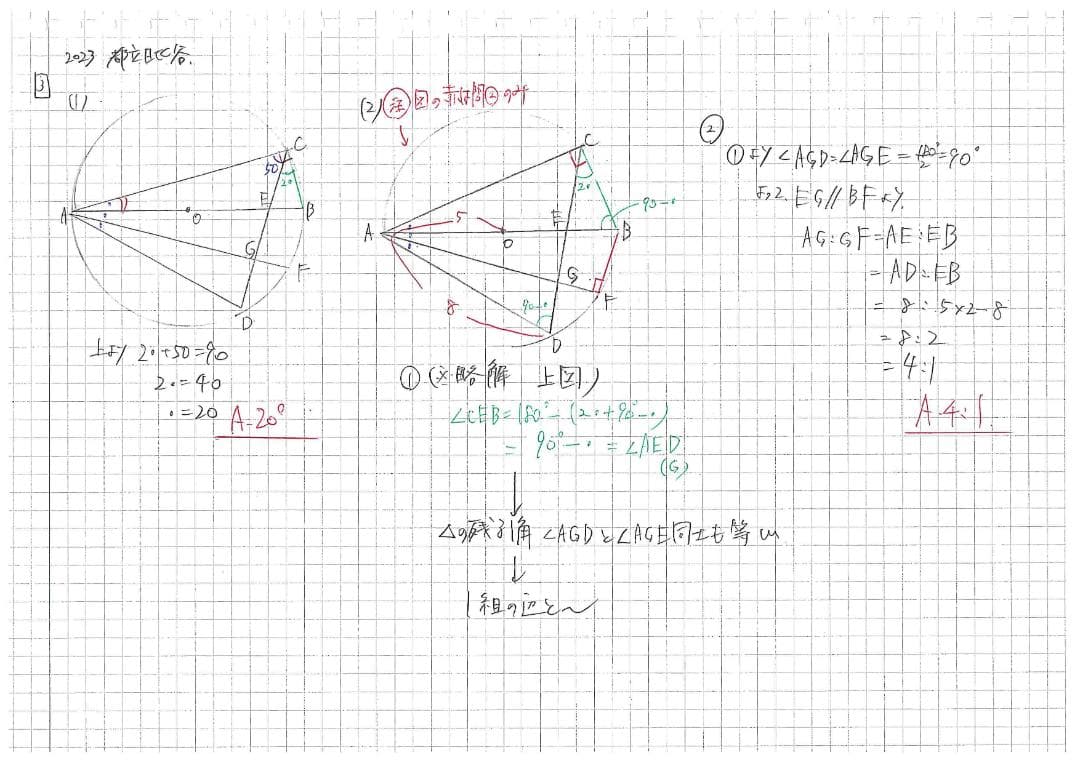 2023 都立日比谷.
3
(1)
A
B
C
D
E
F
G
O
50
2•
上より 2•+50=90
2•=40
•=20
A.20°
(2) 注 図の赤は問②のみ
A
B
C
D
E
F
G
O
5
8
2•
90-•
90-•
① (※略解 上図)
∠CEB=180°-(2•+90°-•)
= 90°-• = ∠AED
(G)
↓
△の残り角 ∠AGDと∠AGE同士も等しい
↓
1組の辺と〜
②
①より∠AGD=∠AGE=180°/2=90°
よって. EG//BFより.
AG:GF=AE:EB
= AD:EB
= 8:5×2-8
= 8:2
= 4:1
A.4:1.